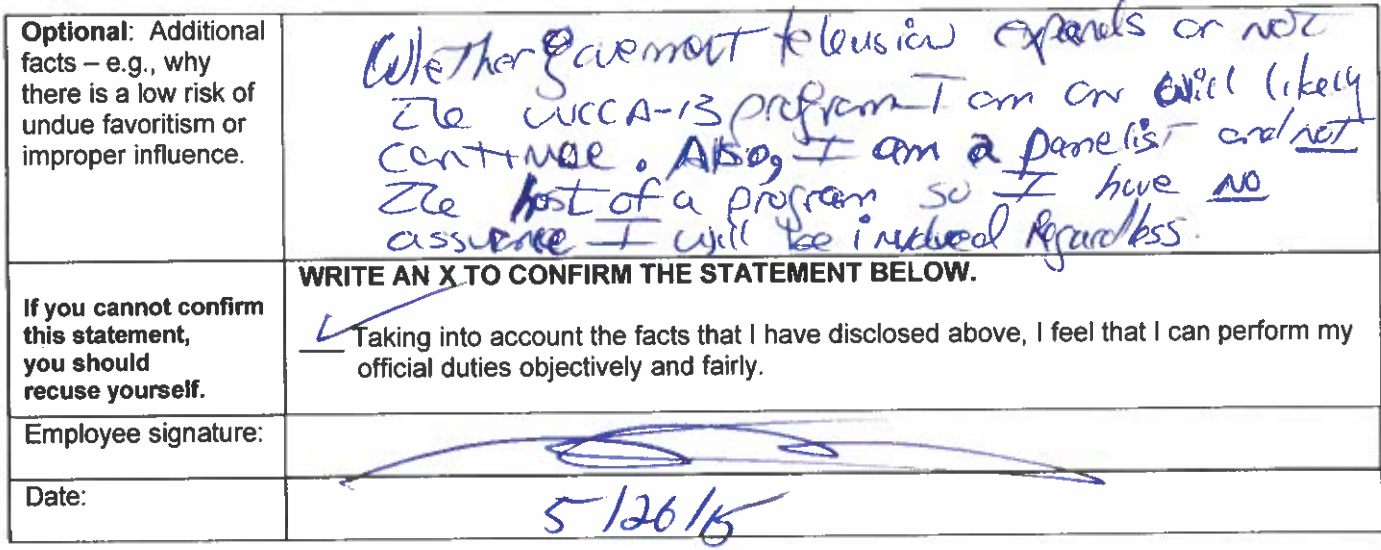 Optional: Additional
facts – e.g., why
there is a low risk of
undue favoritism or
improper influence.
Whether government television expands or not
the WCCA-13 program I am on will likely
continue. Also, I am a panelist and not
the host of a program so I have no
assurance I will be involved regardless.
If you cannot confirm
this statement,
you should
recuse yourself.
WRITE AN X TO CONFIRM THE STATEMENT BELOW.
Taking into account the facts that I have disclosed above, I feel that I can perform my
official duties objectively and fairly.
Employee signature:
Date:
5/26/15